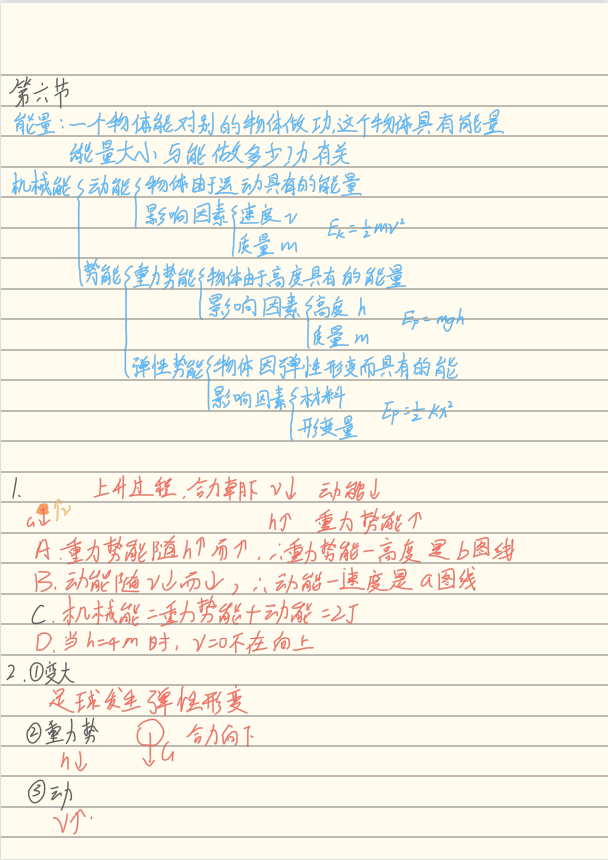 第六节
能量：一个物体能对别的物体做功,这个物体具有能量
能量大小与能做多少功有关
机械能{动能{物体由于运动具有的能量
影响因素{速度v
质量m Eₖ=½mv²
势能{重力势能{物体由于高度具有的能量
影响因素{高度h
质量m Eₚ=mgh
弹性势能{物体因弹性形变而具有的能
影响因素{材料
形变量 Eₚ=½Kx²
1. 上升过程,合力朝下 v↓ 动能↓
G↓ ↑v h↑ 重力势能↑
A.重力势能随h↑而↑,∴重力势能-高度是b图线
B.动能随v↓而↓,∴动能-速度是a图线
C.机械能=重力势能+动能=2J
D.当h=4m时,v=0不在向上
2.①变大
足球发生弹性形变
②重力势 ↓G 合力向下
h↓
③动
v↑